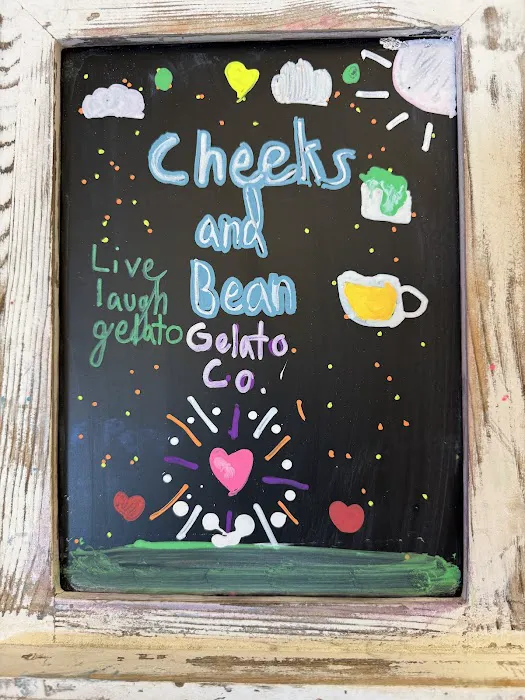 Cheeks
and
Bean
Gelato
Co.
Live
laugh
gelato